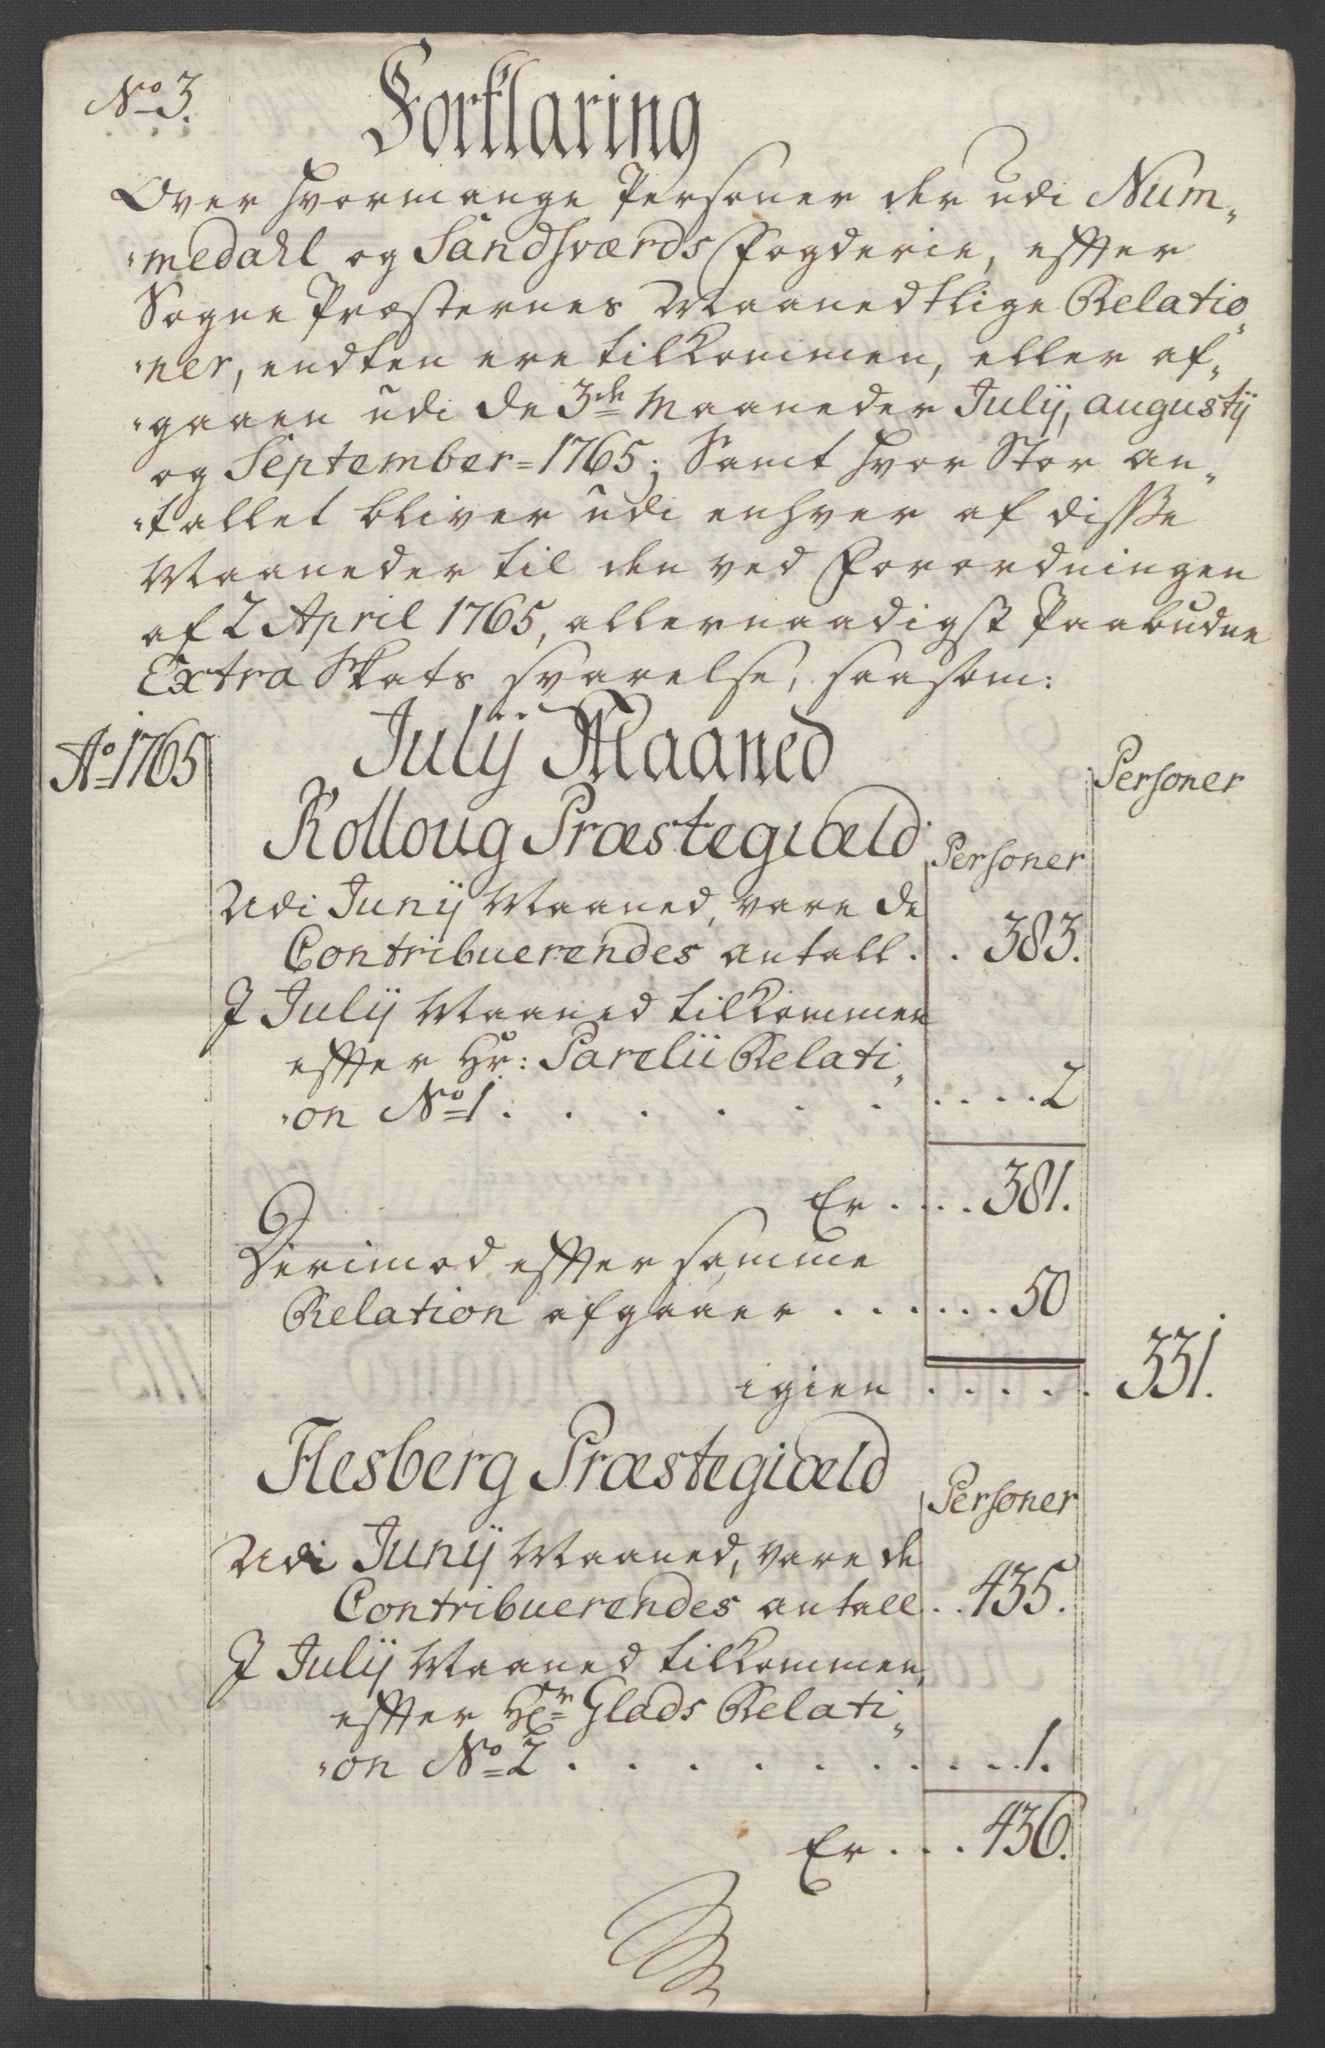 No 3.
Forklaring
Over hvormange Personer der udi Num„
„medahl og Sandsværds Fogderie, efter
Sogne Præsternes Maanedtlige Relatio„
„ner, endten ere tilkommen, eller af„
„gaaen udi de 3de Maaneder Julij, augustij
og September=1765; Samt hvor Stor an„
„tallet bliver udi enhver af disse
Maaneder til den ved Forordningen
af 2 April 1765, allernaadigst Paabudne
Extra Skats svarelse, saasom:
Ao 1765
Julij Maaned
Personer
Rolloug Præstegiæld
Personer
Udi Junij Maaned, vare de
Contribuerendes antall . . 383.
J Julij Maaned tilkommen
efter Hr: Parelii Relati„
„on No 1 . . . . . . . . . . 2
Er . . . . 381.
Derimod efter samme
Relation afgaaer . . . . . . . 50
igien . . . . . 331.
Flesberg Præstegiæld
Personer
Udi Junij Maaned, vare de
Contribuerendes antall . . 435.
J Julij Maaned tilkommen,
efter Hr Glads Relati„
„on No 2 . . . . . . . . . . 1.
Er . . . 436.